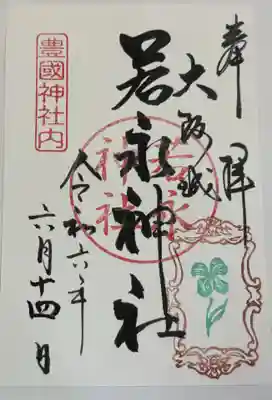 奉拝
大阪城
若永神社
若永神社
令和六年
六月十四日
豊國神社内